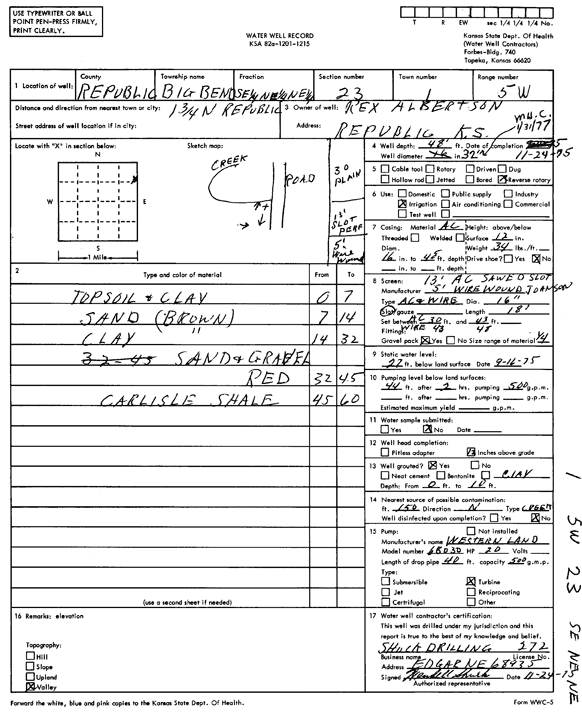 USE TYPEWRITER OR BALL
POINT PEN-PRESS FIRMLY,
PRINT CLEARLY.
WATER WELL RECORD
KSA 82a-1201-1215
T R EW sec 1/4 1/4 1/4 No.
Kansas State Dept. Of Health
(Water Well Contractors)
Forbes-Bldg. 740
Topeka, Kansas 66620
1 Location of well: County Township name Fraction Section number Town number Range number
REPUBLIC BIG BEND SE¼NE¼NE¼ 23 1 5 W
Distance and direction from nearest town or city: 1 3/4 N REPUBLIC
3 Owner of well: REX ALBERTSON
Street address of well location if in city:
Address: REPUBLIC KS.
M.W.C.
1/31/77
Locate with "X" in section below:
N
W E
S
1 Mile
Sketch map:
CREEK
ROAD
30
PLAIN
13'
SLOT
PERF
5'
Wire
Wound
4 Well depth: 48' ft. Date of completion
Well diameter in 32" 11-24-75
5 Cable tool Rotary Driven Dug
Hollow rod Jetted Bored X Reverse rotary
6 Use: Domestic Public supply Industry
X Irrigation Air conditioning Commercial
Test well
7 Casing: Material AC Height: above/below
Threaded Welded Surface 12 in.
Diam. Weight 34 lbs./ft.
16 in. to 48 ft. depth Drive shoe? Yes X No
in. to ft. depth
2 Type and color of material From To
TOPSOIL & CLAY 0 7
SAND (BROWN) 7 14
CLAY " 14 32
32-45 SAND & GRAVEL
RED 32 45
CARLISLE SHALE 45 60
(use a second sheet if needed)
8 Screen: 13' AC SAWED SLOT
Manufacturer 5' WIREWOUND JOHNSON
Type AC & WIRE Dia. 16"
Slot/gauze Length 18'
Set between AC 30 ft. and 43 ft.
Fitting: WIRE 43 48
Gravel pack X Yes No Size range of material 1/4
9 Static water level:
22 ft. below land surface Date 9-16-75
10 Pumping level below land surfaces:
44 ft. after 2 hrs. pumping 500 g.p.m.
ft. after hrs. pumping g.p.m.
Estimated maximum yield g.p.m.
11 Water sample submitted:
Yes X No Date
12 Well head completion:
Pitless adapter 12 Inches above grade
13 Well grouted? X Yes No
Neat cement Bentonite CLAY
Depth: From 0 ft. to 10 ft.
14 Nearest source of possible contamination:
ft. 150 Direction N Type CREEK
Well disinfected upon completion? Yes X No
15 Pump: Not installed
Manufacturer's name WESTERN LAND
Model number 6R030 HP 20 Volts
Length of drop pipe 40 ft. capacity 500 g.m.p.
Type:
Submersible X Turbine
Jet Reciprocating
Certrifugal Other
16 Remarks: elevation
Topography:
Hill
Slope
Upland
X Valley
17 Water well contractor's certification:
This well was drilled under my jurisdiction and this
report is true to the best of my knowledge and belief.
SHUCK DRILLING 272
Business name License No.
Address EDGAR NE 68935
Signed Wendell Shuck Date 11-24-75
Authorized representative
Forward the white, blue and pink copies to the Kansas State Dept. Of Health.
Form WWC-5
1 5W 23 SE NE NE